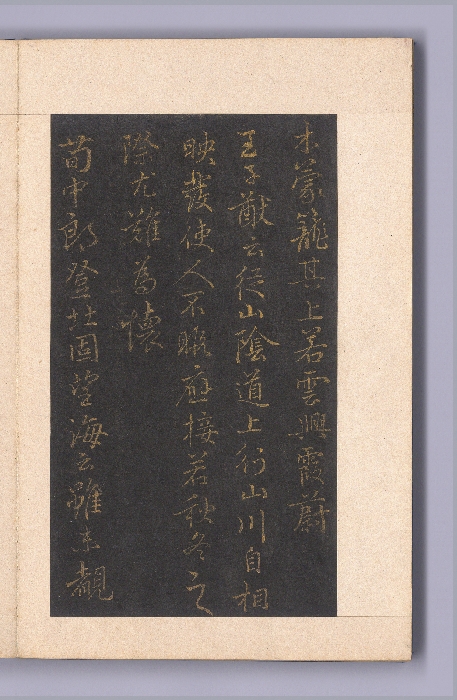 木蒙籠其上若雲興霞蔚
王子猷云從山陰道上行山川自相
映發使人不暇應接若秋冬之
際尤難為懷
荀中郎登北固望海云雖未覩